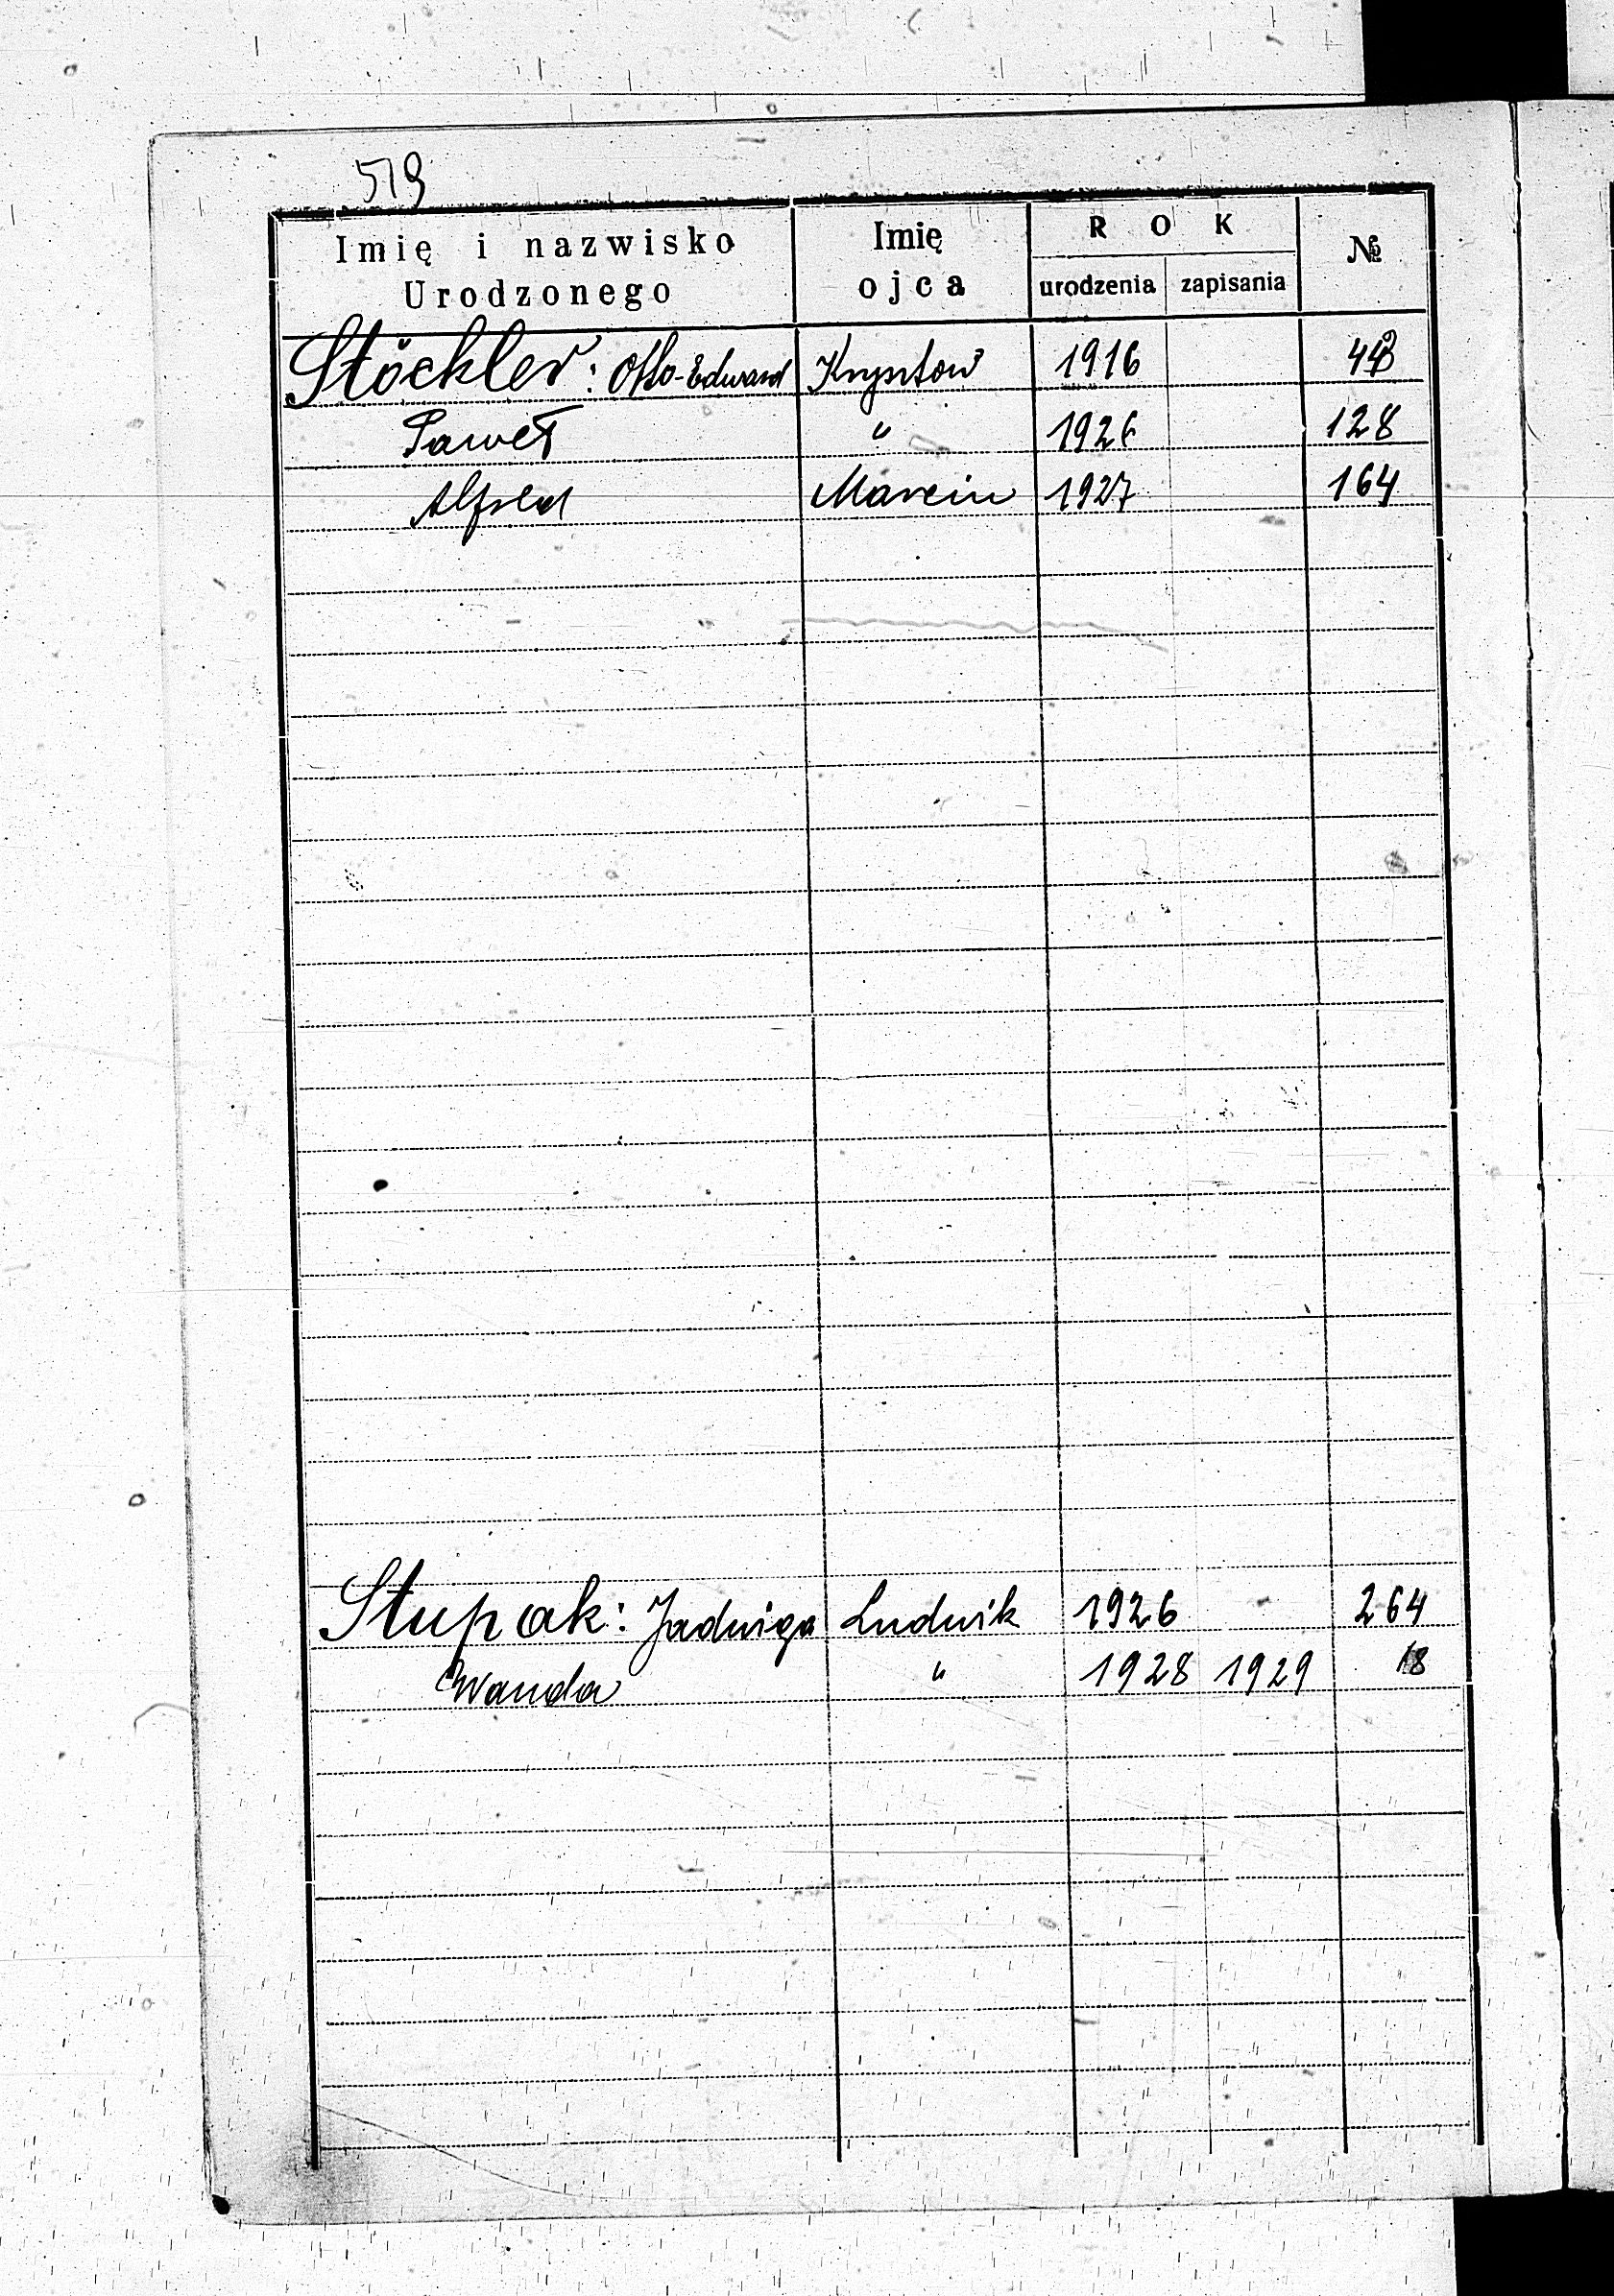 519
Imię i nazwisko Urodzonego | Imię ojca | ROK urodzenia | zapisania | №
Stöckler: Otto-Edward | Krysztow | 1916 | | 48
Paweł | " | 1926 | | 128
Alfred | Marcin | 1927 | | 164
Stupak: Jadwiga | Ludwik | 1926 | | 264
Wanda | " | 1928 | 1929 | 18